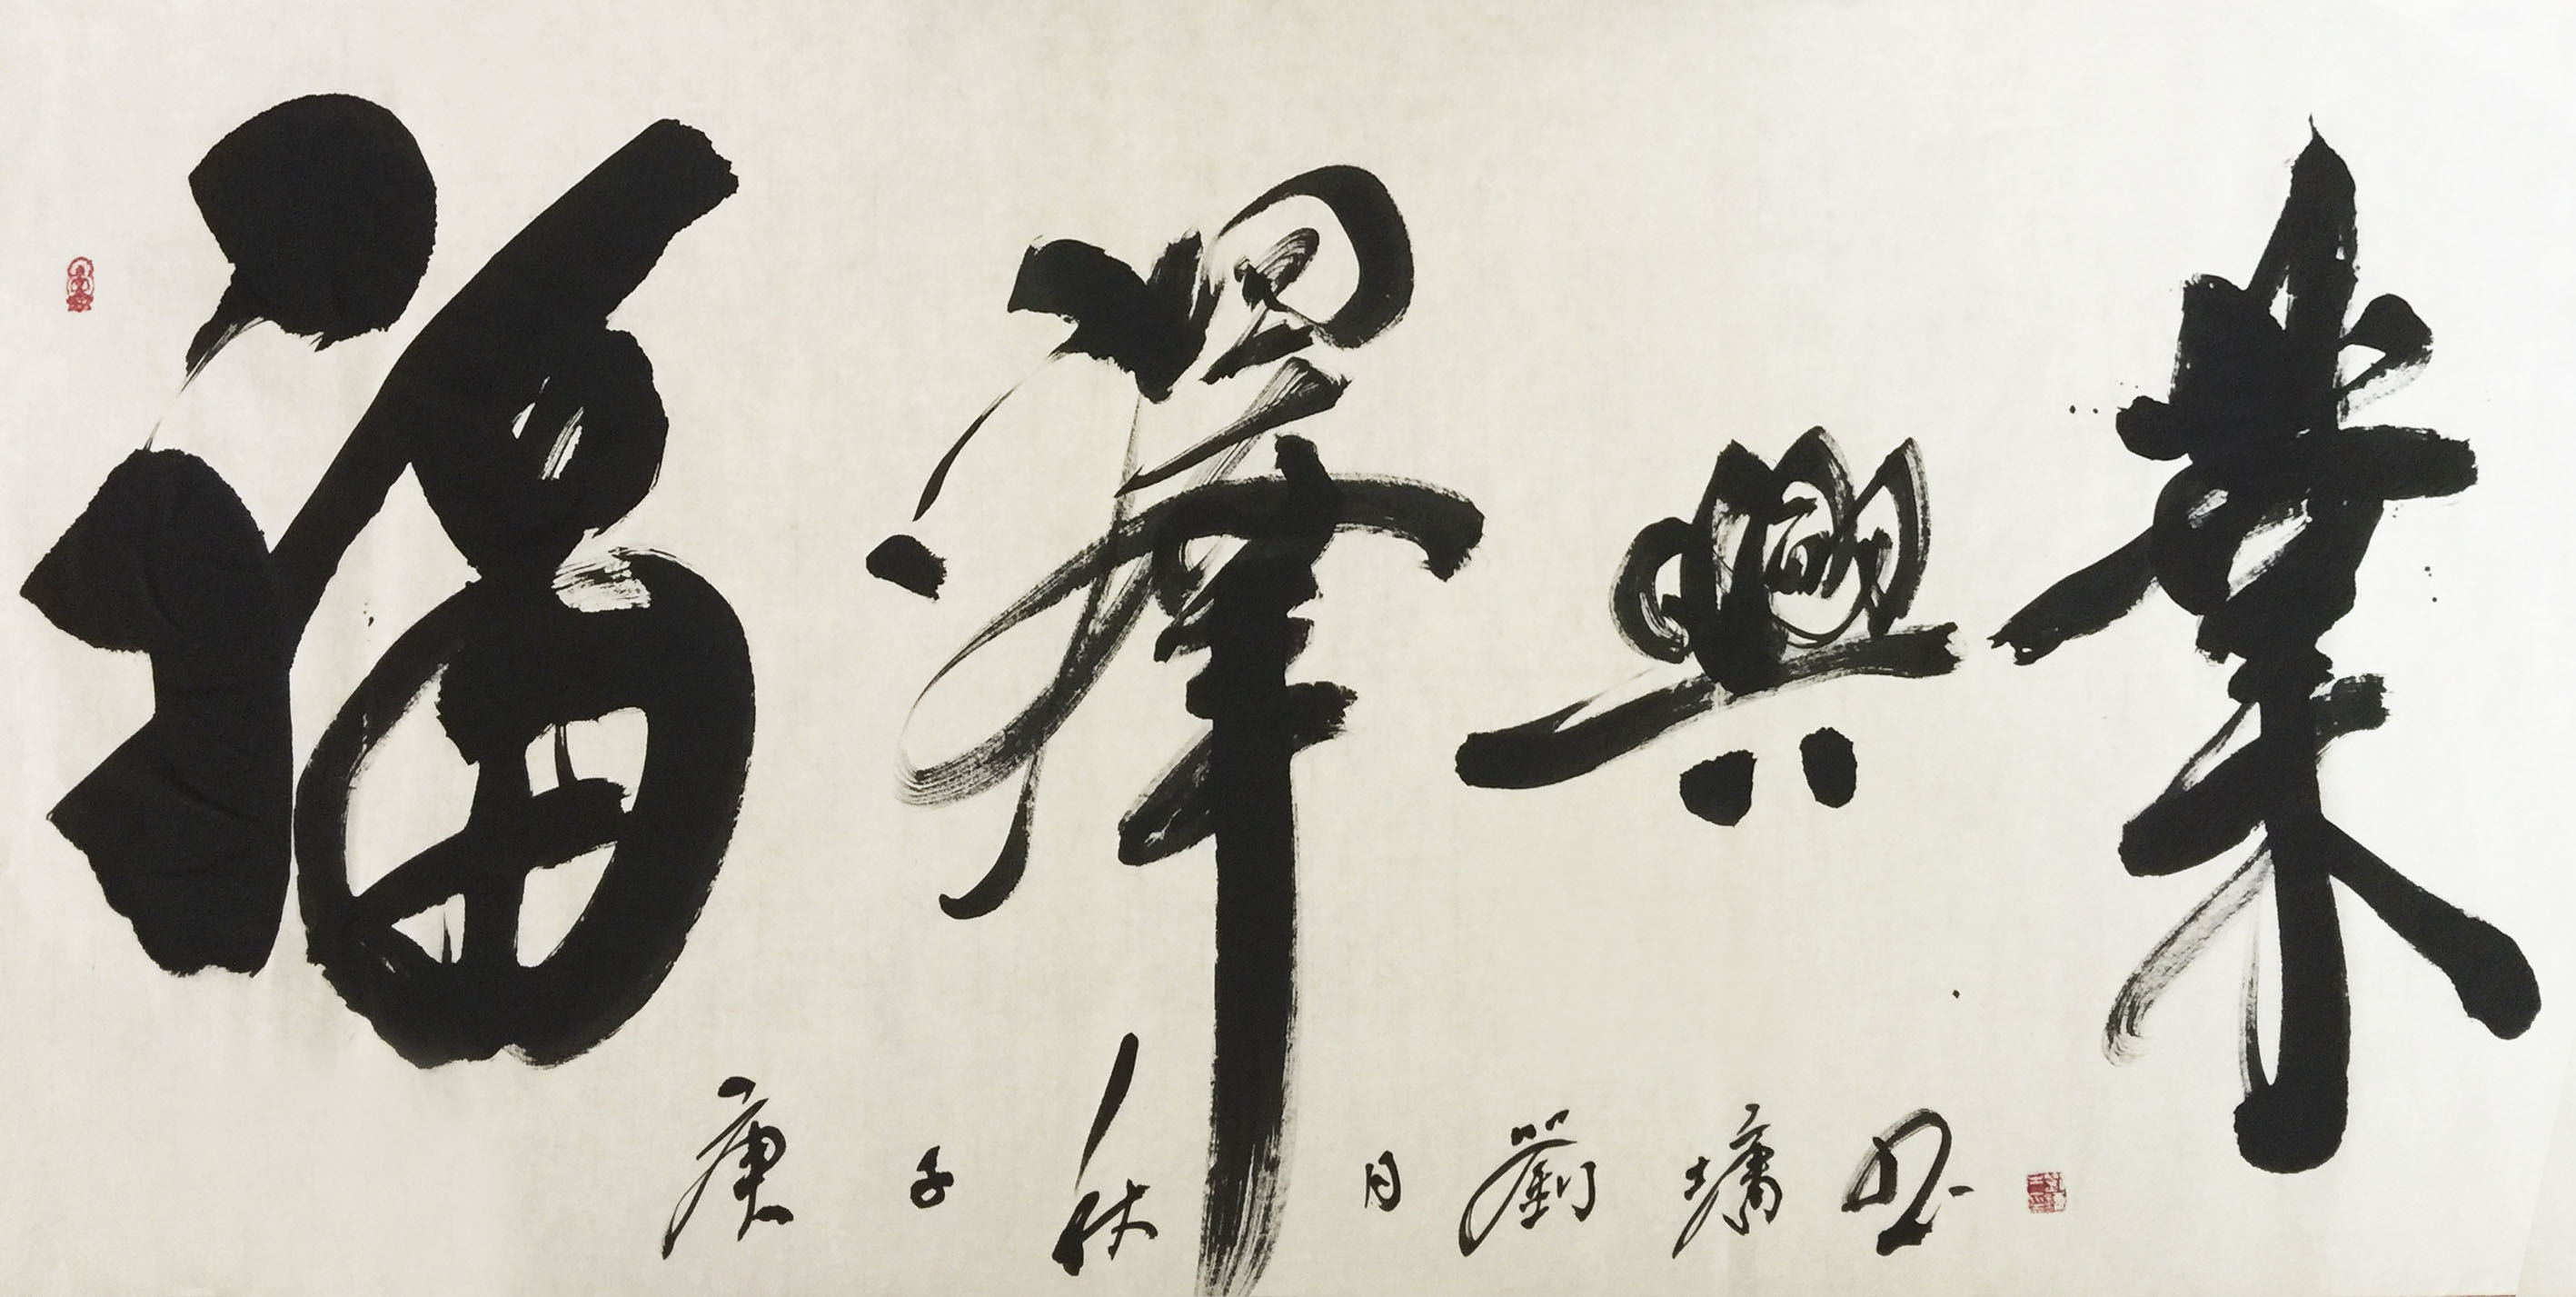 福澤興業
庚子秋月劉墉書